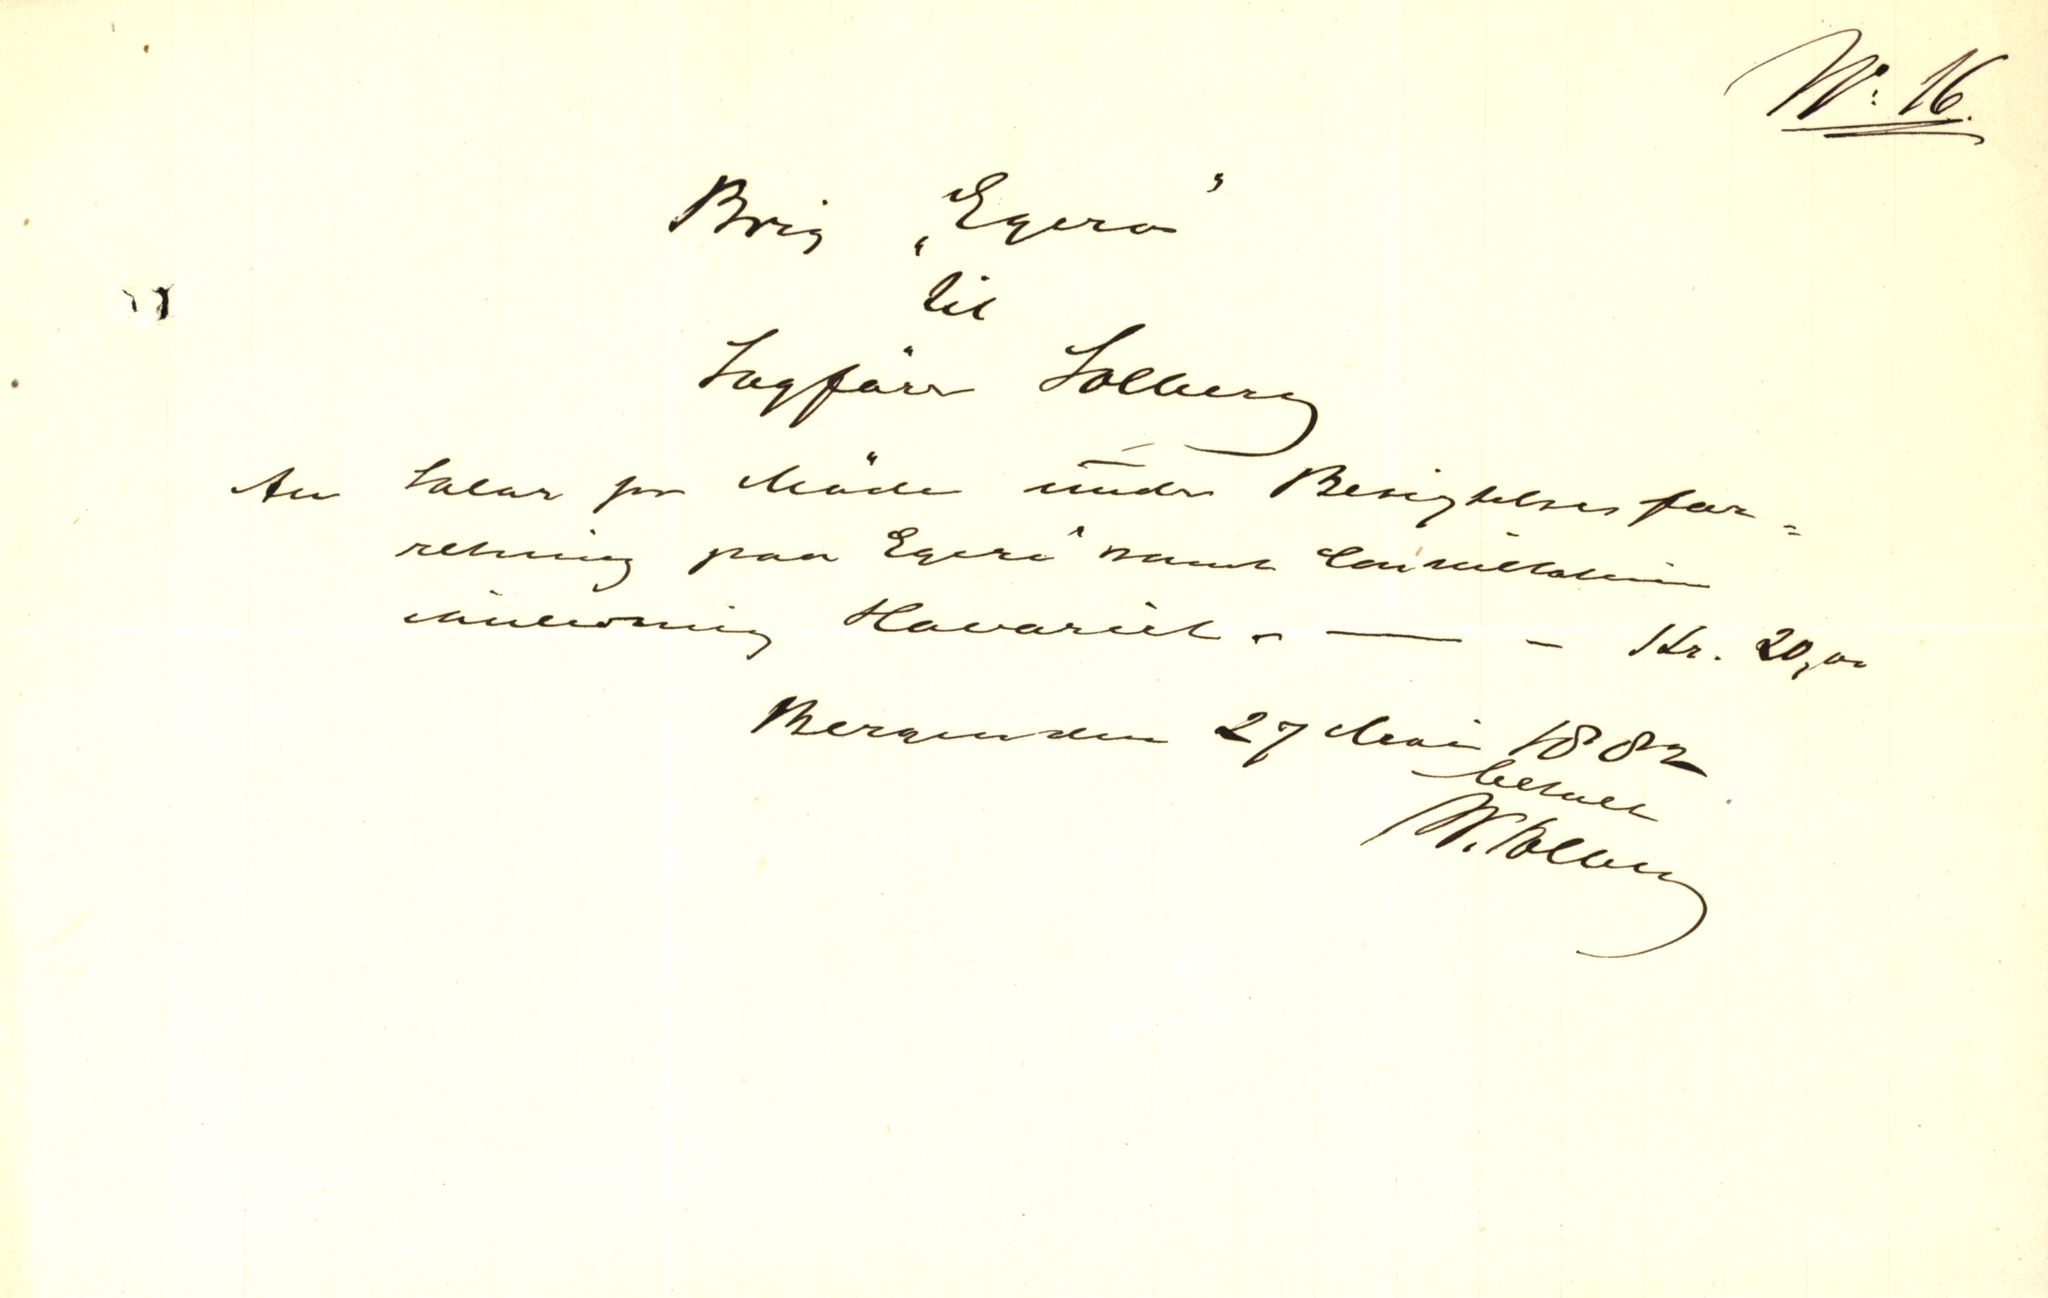 No: 16.
Brig „Egerö"
til
Sagförer Solberg
An Salær for Möde under Besigtelsesfor=
retning paa Egerö samt Consultation
Havariet. — Kr. 20,00
Bergen den 27 Mai 1882
betalt
W. Solberg